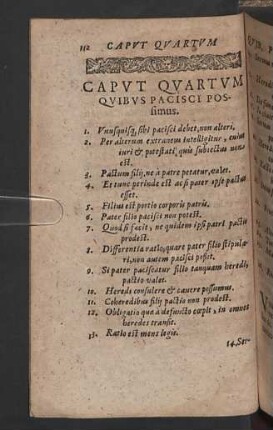 112 CAPVT QVARTVM
CAPVT QVARTVM
QVIBVS PACISCI POS-
simus.
1. Vnusquisq, sibi pacisci debet, non alteri.
2. Per alterum extraneus intelligitur, cuius
iuri & potestati, quis subiectus non
est.
3. Pactum filij, ne à patre petatur, valet.
4. Et tunc perinde est ac si pater ipse pactus
esset.
5. Filius est portio corporis patris.
6. Pater filio pacisci non potest.
7. Quod si facit, ne quidem ipsi patri pactio
prodest.
8. Differentia ratio, quare pater filio stipula-
ri, non autem pacisci possit.
9. Si pater paciscatur filio tanquam heredi,
pactio valet.
10. Heredi consulere & cauere possumus.
11. Coheredibus filij pactio non prodest.
12. Obligatio quæ à defuncto cœpit, in omnes
heredes transit.
13. Ratio est mens legis.
14. Ser-